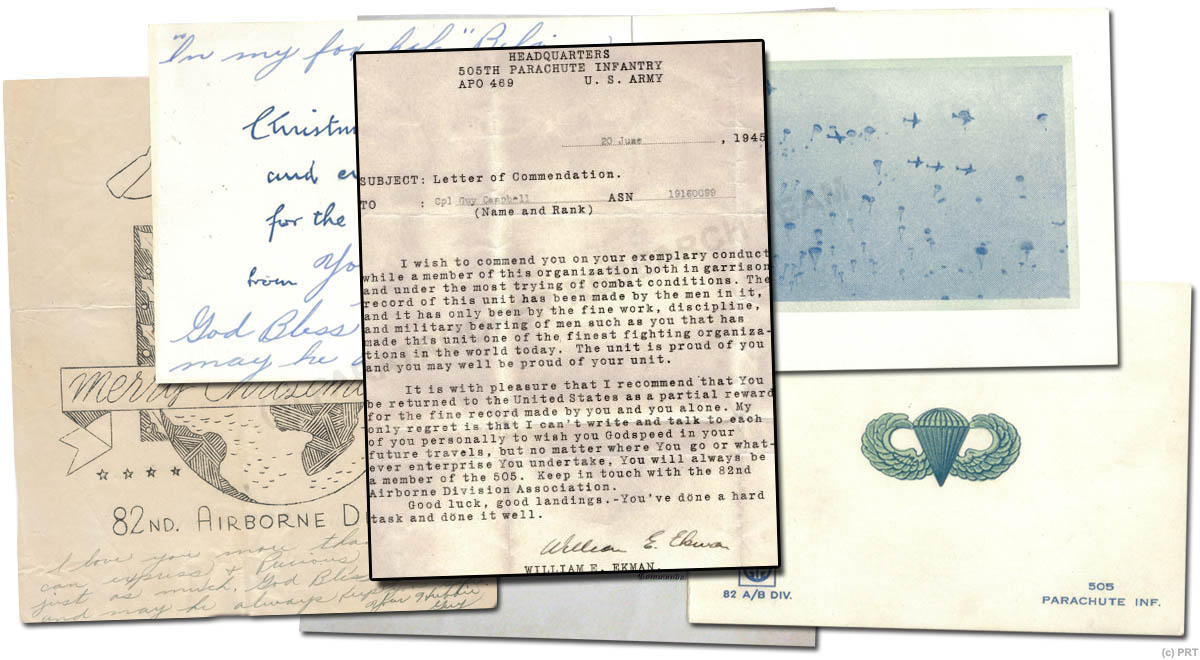 "In my fox hole"
Christm
and en
for the
from Yo
God Bless
may he a
HEADQUARTERS
505TH PARACHUTE INFANTRY
APO 469 U. S. ARMY
20 June , 1945
SUBJECT: Letter of Commendation.
TO : Cpl Guy Campbell ASN 19160099
(Name and Rank)
I wish to commend you on your exemplary conduct
while a member of this organization both in garrison
and under the most trying of combat conditions. The
record of this unit has been made by the men in it,
and it has only been by the fine work, discipline,
and military bearing of men such as you that has
made this unit one of the finest fighting organiza-
tions in the world today. The unit is proud of you
and you may well be proud of your unit.
It is with pleasure that I recommend that You
be returned to the United States as a partial reward
for the fine record made by you and you alone. My
only regret is that I can't write and talk to each
of you personally to wish you Godspeed in your
future travels, but no matter where You go or what-
ever enterprise You undertake, You will always be
a member of the 505. Keep in touch with the 82nd
Airborne Division Association.
Good luck, good landings.-You've done a hard
task and done it well.
William E. Ekman
WILLIAM E. EKMAN.
Merry Christm
82ND. AIRBORNE D
I love you more than
can express &
just as much. God Bless
and may he always keep
Your Hubbie
Guy
82 A/B DIV.
505
PARACHUTE INF.
(c) PRT